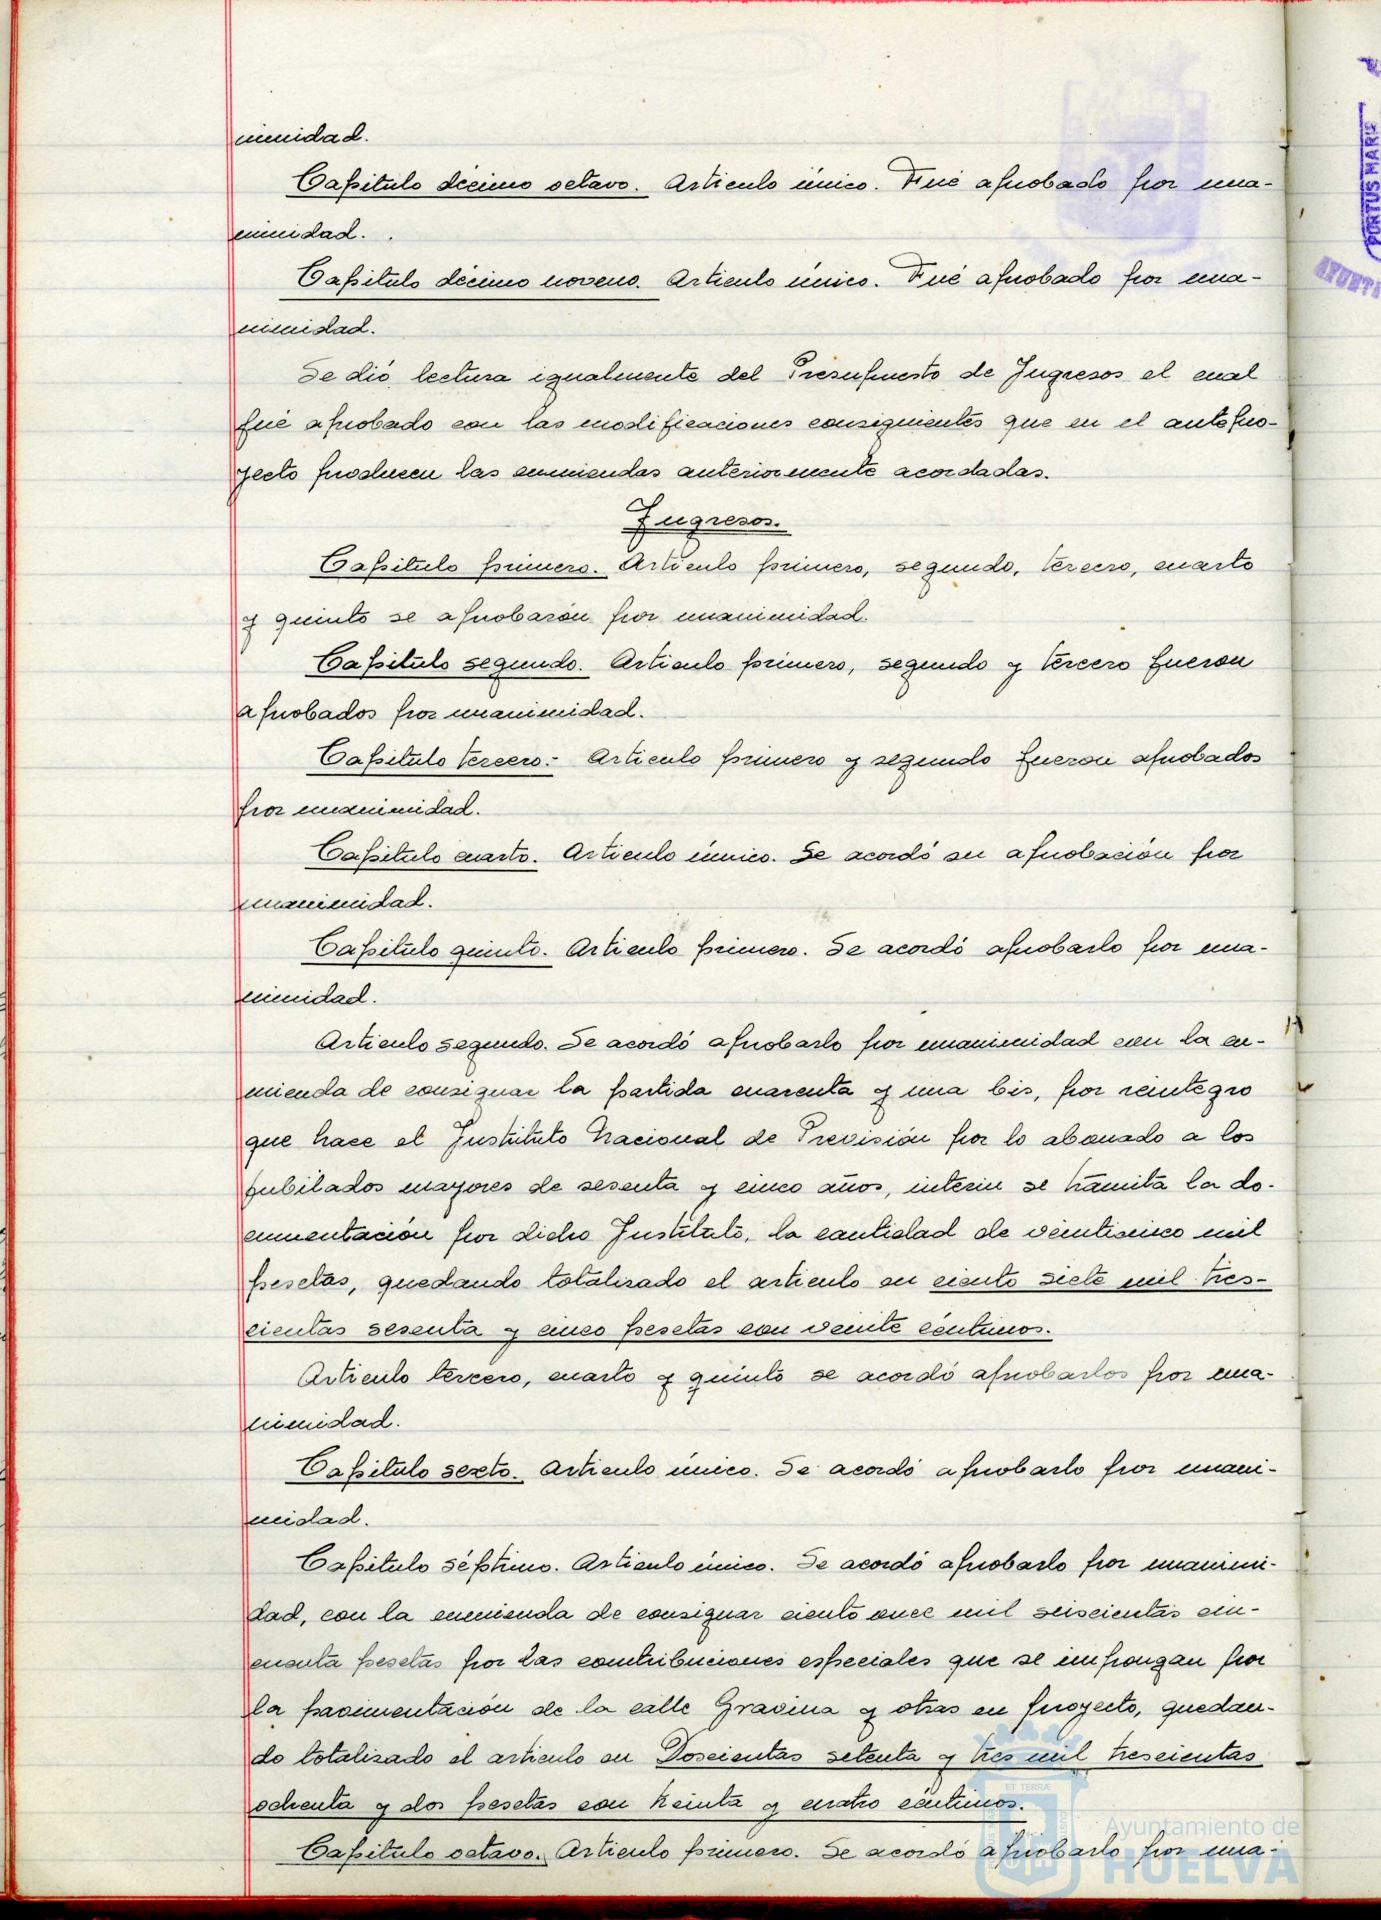 nimidad.
Capitulo décimo octavo. Articulo único. Fué aprobado por una-
nimidad.
Capitulo décimo noveno. Articulo único. Fué aprobado por una-
nimidad.
Se dió lectura igualmente del Presupuesto de Ingresos el cual
fué aprobado con las modificaciones consiguientes que en el antepro-
yecto producen las enmiendas anteriormente acordadas.
Ingresos.
Capitulo primero. Articulo primero, segundo, tercero, cuarto
y quinto se aprobarón por unanimidad.
Capitulo segundo. Articulo primero, segundo y tercero fueron
aprobados por unanimidad.
Capitulo tercero.- Articulo primero y segundo fueron aprobados
por unanimidad.
Capitulo cuarto. Articulo único. Se acordó su aprobación por
unanimidad.
Capitulo quinto. Articulo primero. Se acordó aprobarlo por una-
nimidad.
Articulo segundo. Se acordó aprobarlo por unanimidad con la en-
mienda de consignar la partida cuarenta y una bis, por reintegro
que hace el Instituto Nacional de Previsión por lo abonado a los
jubilados mayores de sesenta y cinco años, interin se tramita la do-
cumentación por dicho Instituto, la cantidad de veinticinco mil
pesetas, quedando totalizado el articulo en ciento siete mil tres-
cientas sesenta y cinco pesetas con veinte céntimos.
Articulo tercero, cuarto y quinto se acordó aprobarlos por una-
nimidad.
Capitulo sexto. Articulo único. Se acordó aprobarlo por unani-
midad.
Capitulo séptimo. Articulo único. Se acordó aprobarlo por unanimi-
dad, con la enmienda de consignar ciento once mil seiscientas cin-
cuenta pesetas por las contribuciones especiales que se impongan por
la pavimentación de la calle Gravina y otras en proyecto, quedan-
do totalizado el articulo en Doscientas setenta y tres mil trescientas
ochenta y dos pesetas con treinta y cuatro céntimos.
Capitulo octavo. Articulo primero. Se acordó aprobarlo por una-
PORTUS MARIS
AYUNTA
ET TERRÆ
Ayuntamiento de
HUELVA